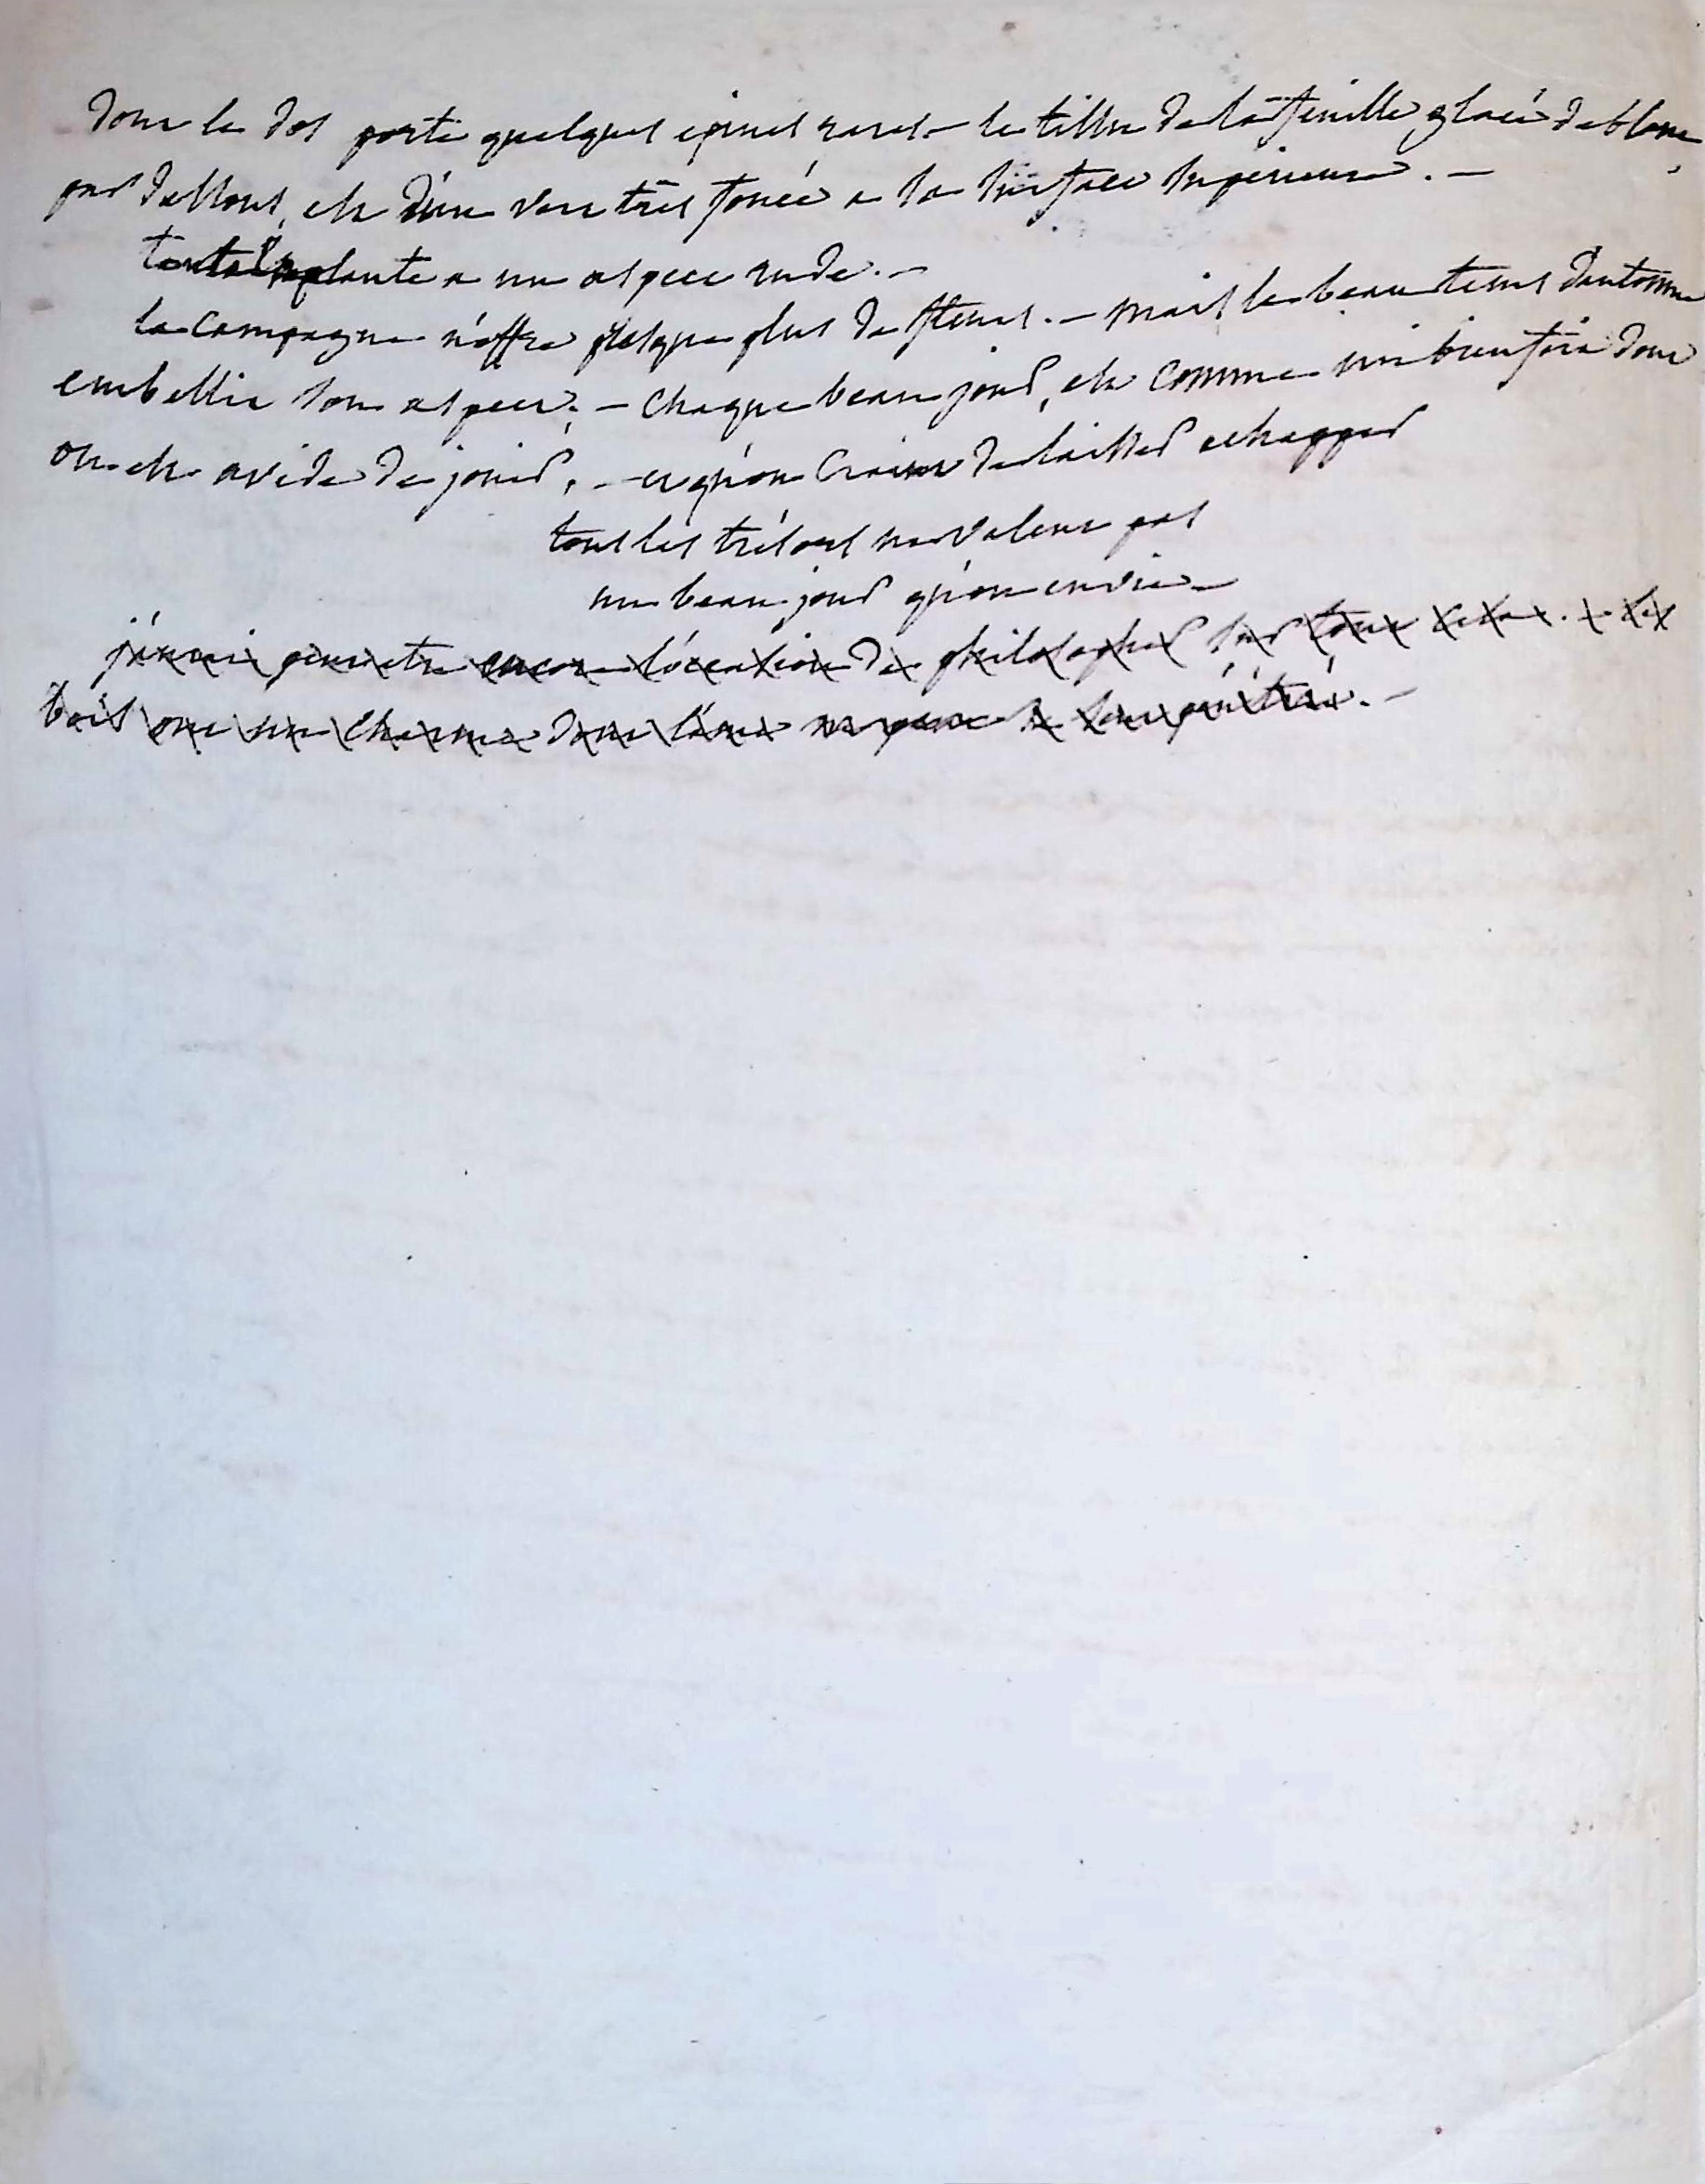 dont le dos porte quelques epines rares. – le tissu de la feuille glacé de blanc,
par dessous, est d'un vert très foncé a la surface superieure. –
toute la plante a un aspect rude. –
la campagne n'offre presque plus de fleurs. – mais le beau tems d'automne
embellit son aspect. – chaque beau jour, est comme un bienfait dont
on est avide de jouir, – et qu'on craint de laisser echapper
tous les trésors ne valent pas
un beau jour qu'on envie –
j'aurai peut etre encore l'occasion de philosopher sur tout cela. – les
bois ont un charme dont l'ame ne peut se sentir pénétré. –